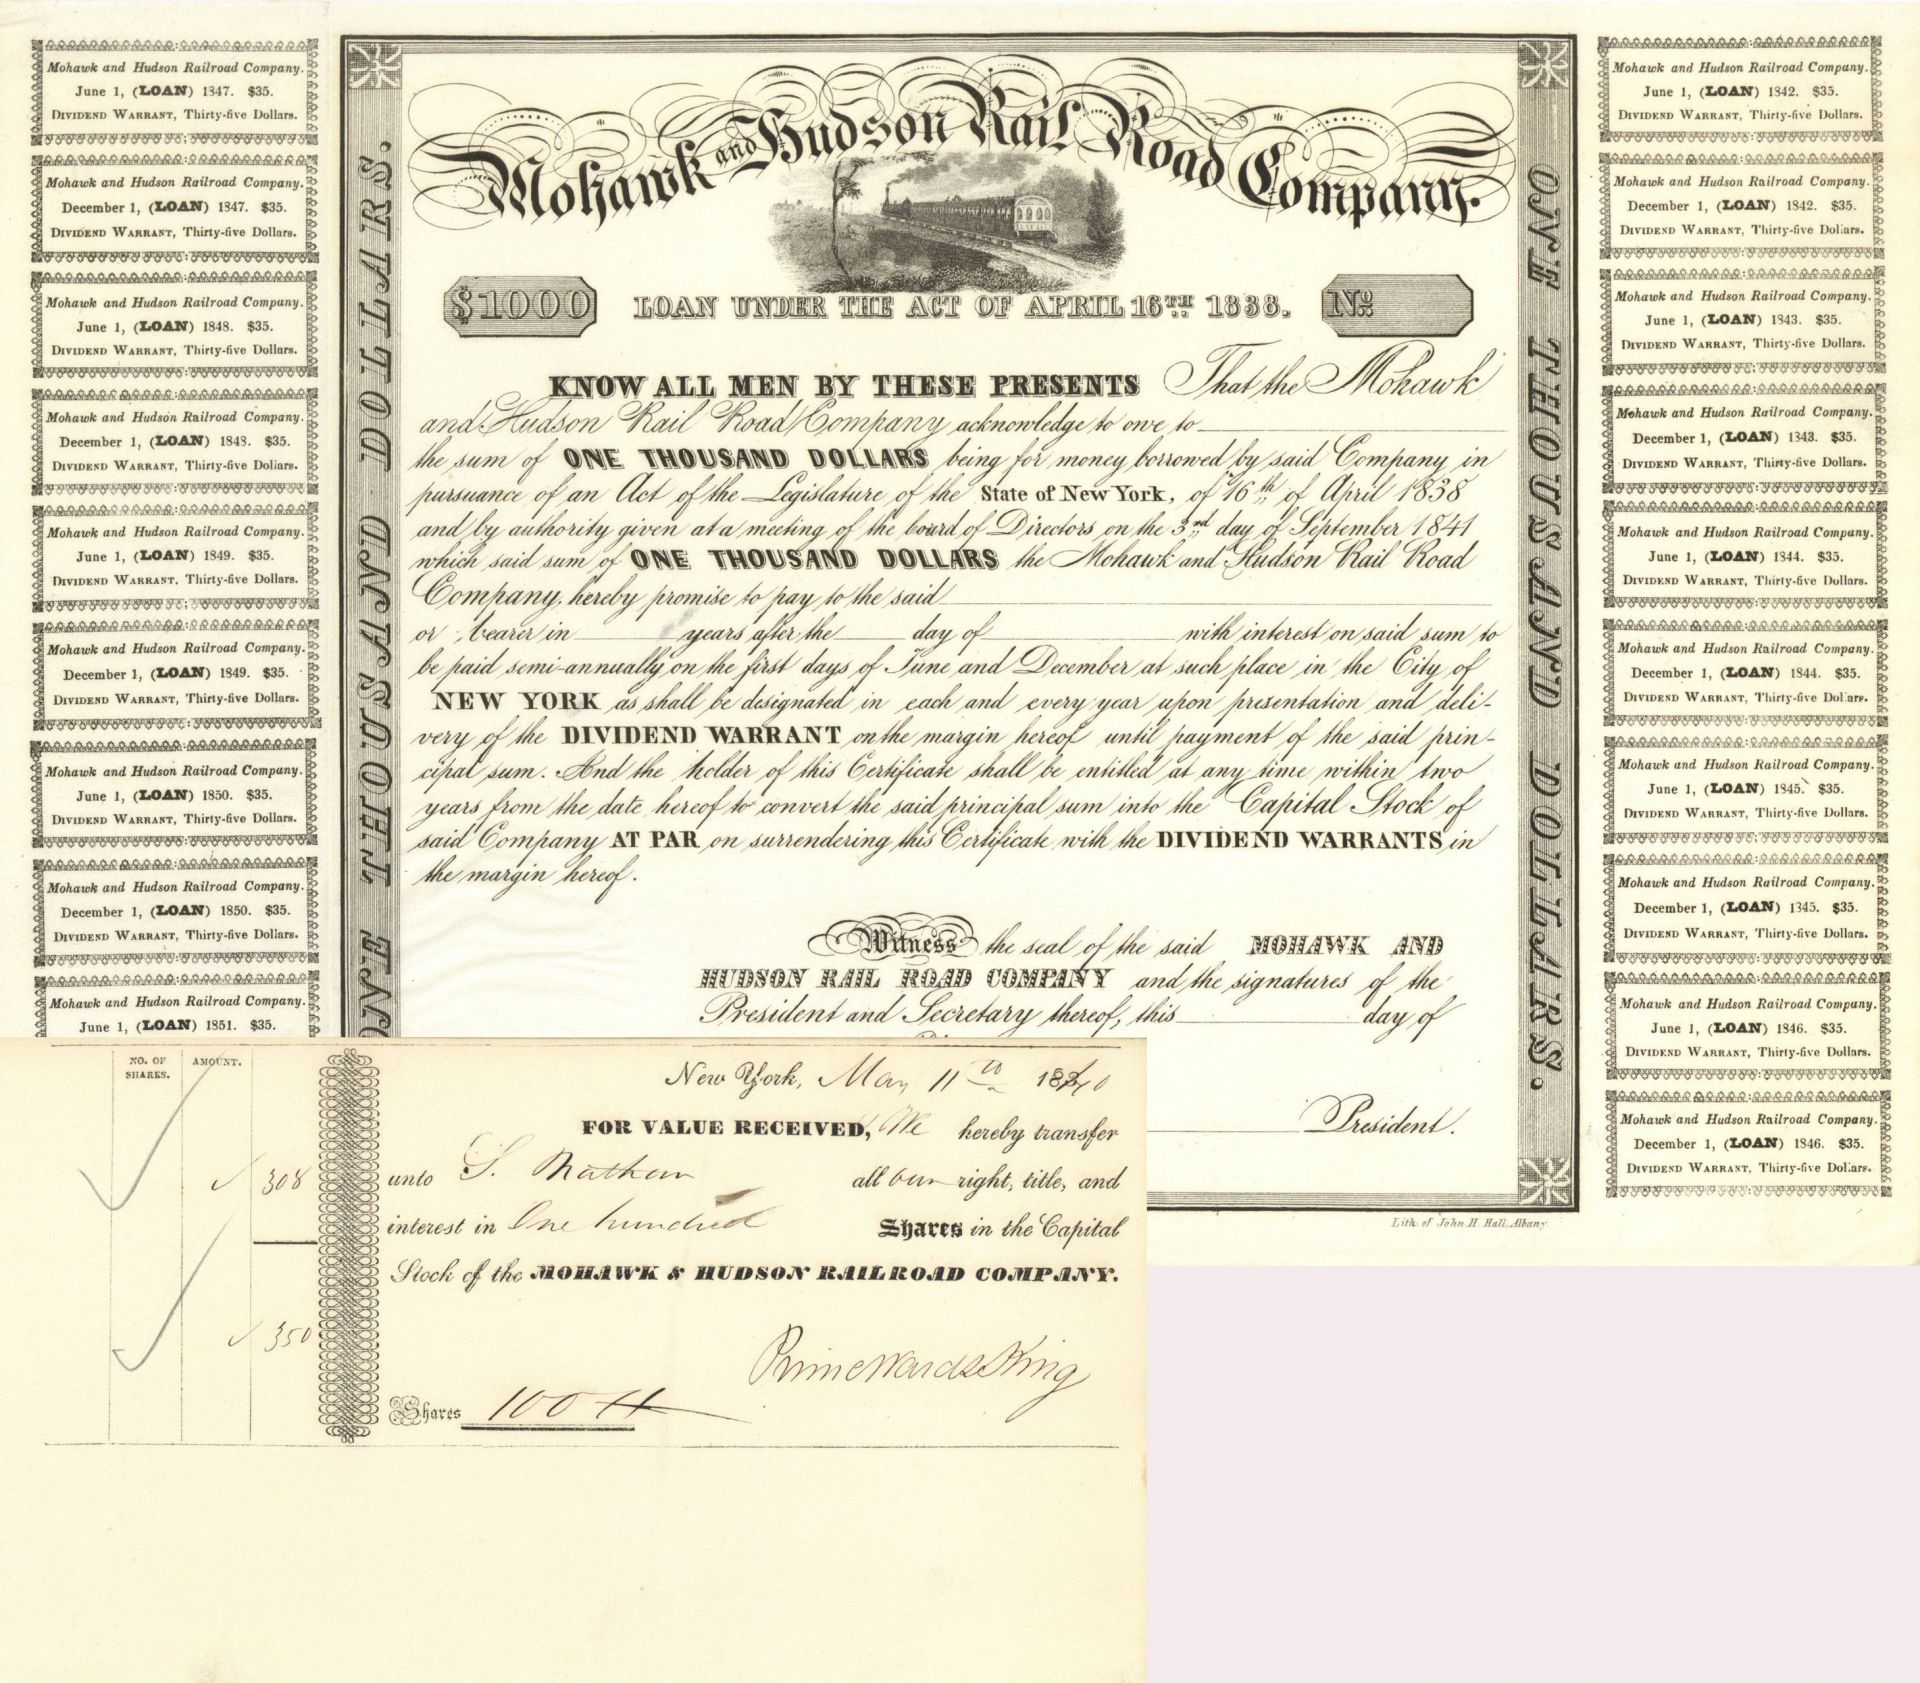 Mohawk and Hudson Railroad Company.
June 1, (LOAN) 1847. $35.
DIVIDEND WARRANT, Thirty-five Dollars.
Mohawk and Hudson Railroad Company.
December 1, (LOAN) 1847. $35.
DIVIDEND WARRANT, Thirty-five Dollars.
Mohawk and Hudson Railroad Company.
June 1, (LOAN) 1848. $35.
DIVIDEND WARRANT, Thirty-five Dollars.
Mohawk and Hudson Railroad Company.
December 1, (LOAN) 1848. $35.
DIVIDEND WARRANT, Thirty-five Dollars.
Mohawk and Hudson Railroad Company.
June 1, (LOAN) 1849. $35.
DIVIDEND WARRANT, Thirty-five Dollars.
Mohawk and Hudson Railroad Company.
December 1, (LOAN) 1849. $35.
DIVIDEND WARRANT, Thirty-five Dollars.
Mohawk and Hudson Railroad Company.
June 1, (LOAN) 1850. $35.
DIVIDEND WARRANT, Thirty-five Dollars.
Mohawk and Hudson Railroad Company.
December 1, (LOAN) 1850. $35.
DIVIDEND WARRANT, Thirty-five Dollars.
Mohawk and Hudson Railroad Company.
June 1, (LOAN) 1851. $35.
ONE THOUSAND DOLLARS.
Mohawk and Hudson Rail Road Company.
$1000 LOAN UNDER THE ACT OF APRIL 16TH 1838. No.
KNOW ALL MEN BY THESE PRESENTS That the Mohawk
and Hudson Rail Road Company acknowledge to owe to
the sum of ONE THOUSAND DOLLARS being for money borrowed by said Company in
pursuance of an Act of the Legislature of the State of New York, of 16th of April 1838
and by authority given at a meeting of the board of Directors on the 3rd day of September 1841
which said sum of ONE THOUSAND DOLLARS the Mohawk and Hudson Rail Road
Company, hereby promise to pay to the said
or bearer in years after the day of with interest on said sum to
be paid semi-annually on the first days of June and December at such place in the City of
NEW YORK as shall be designated in each and every year upon presentation and deli-
very of the DIVIDEND WARRANT on the margin hereof until payment of the said prin-
cipal sum. And the holder of this Certificate shall be entitled at any time within two
years from the date hereof to convert the said principal sum into the Capital Stock of
said Company AT PAR on surrendering this Certificate with the DIVIDEND WARRANTS in
the margin hereof.
Witness the seal of the said MOHAWK AND
HUDSON RAIL ROAD COMPANY and the signatures of the
President and Secretary thereof, this day of
President.
Lith. of John H. Hall, Albany.
ONE THOUSAND DOLLARS.
Mohawk and Hudson Railroad Company.
June 1, (LOAN) 1842. $35.
DIVIDEND WARRANT, Thirty-five Dollars.
Mohawk and Hudson Railroad Company.
December 1, (LOAN) 1842. $35.
DIVIDEND WARRANT, Thirty-five Dollars.
Mohawk and Hudson Railroad Company.
June 1, (LOAN) 1843. $35.
DIVIDEND WARRANT, Thirty-five Dollars.
Mohawk and Hudson Railroad Company.
December 1, (LOAN) 1843. $35.
DIVIDEND WARRANT, Thirty-five Dollars.
Mohawk and Hudson Railroad Company.
June 1, (LOAN) 1844. $35.
DIVIDEND WARRANT, Thirty-five Dollars.
Mohawk and Hudson Railroad Company.
December 1, (LOAN) 1844. $35.
DIVIDEND WARRANT, Thirty-five Dollars.
Mohawk and Hudson Railroad Company.
June 1, (LOAN) 1845. $35.
DIVIDEND WARRANT, Thirty-five Dollars.
Mohawk and Hudson Railroad Company.
December 1, (LOAN) 1845. $35.
DIVIDEND WARRANT, Thirty-five Dollars.
Mohawk and Hudson Railroad Company.
June 1, (LOAN) 1846. $35.
DIVIDEND WARRANT, Thirty-five Dollars.
Mohawk and Hudson Railroad Company.
December 1, (LOAN) 1846. $35.
DIVIDEND WARRANT, Thirty-five Dollars.
NO. OF SHARES. AMOUNT.
308
350
New York, May 11th 1840
FOR VALUE RECEIVED, We hereby transfer
unto S. Nathan all our right, title, and
interest in One hundred Shares in the Capital
Stock of the MOHAWK & HUDSON RAILROAD COMPANY.
Prime Ward & King
Shares 100